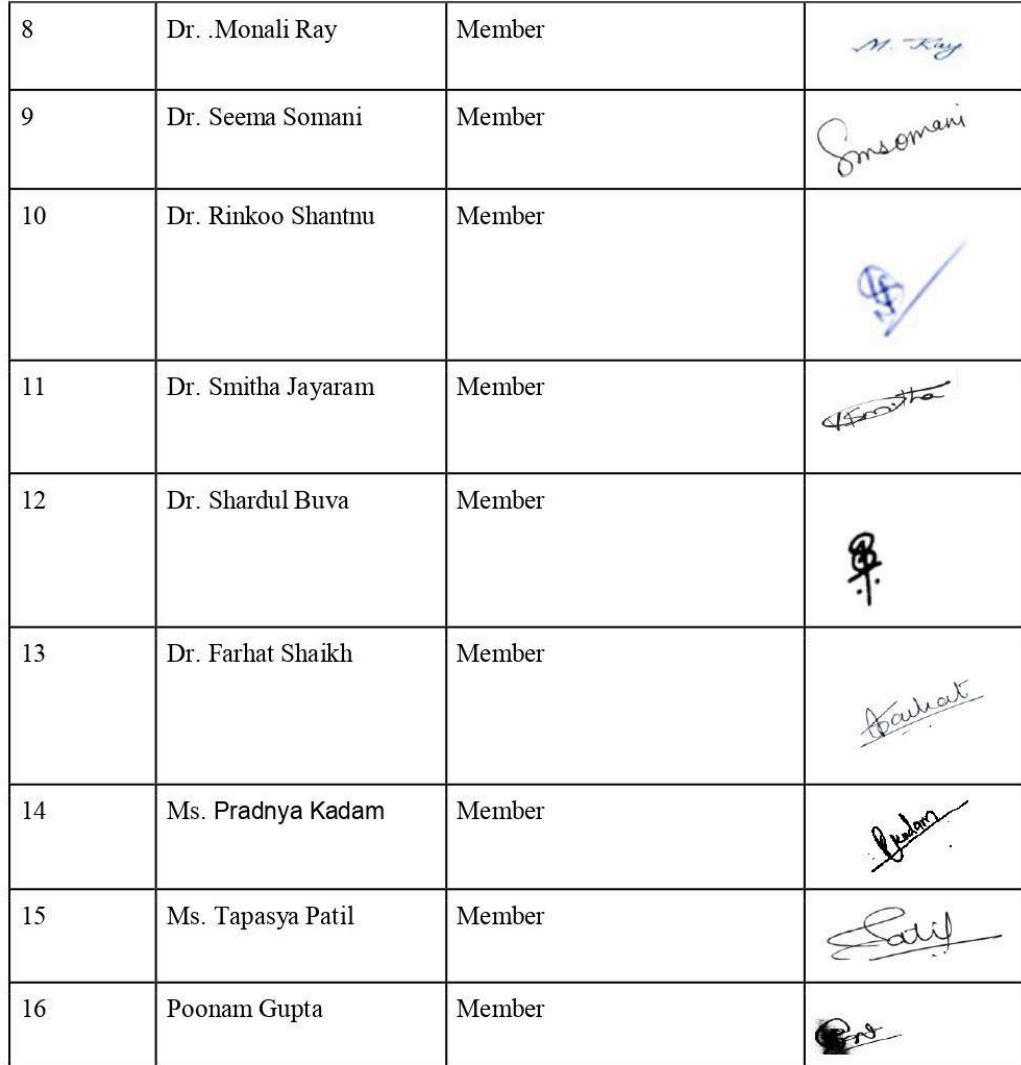 8 Dr. .Monali Ray Member M. Ray
9 Dr. Seema Somani Member Smsomani
10 Dr. Rinkoo Shantnu Member
11 Dr. Smitha Jayaram Member Smitha
12 Dr. Shardul Buva Member
13 Dr. Farhat Shaikh Member Farhat
14 Ms. Pradnya Kadam Member Pkadam
15 Ms. Tapasya Patil Member Patil
16 Poonam Gupta Member